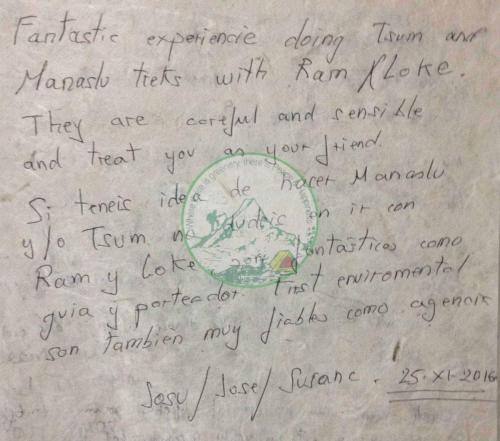 Fantastic experiencie doing Tsum and
Manaslu treks with Ram / Loke.
They are careful and sensible
and treat you as your friend.
Si teneis idea de hacer Manaslu
y/o Tsum no dudeis en ir con
Ram y Loke son fantasticos como
guia y porteador. First enviromental
son también muy fiables como agencia
Josu / Jose / Susane. 25-XI-2016
Where there is greenery, there is